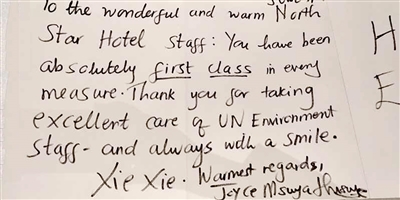 To the wonderful and warm North
Star Hotel Staff: You have been
absolutely first class in every
measure. Thank you for taking
excellent care of UN Environment
Staff - and always with a smile.
Xie Xie. Warmest regards,
Joyce Msuya
H
E